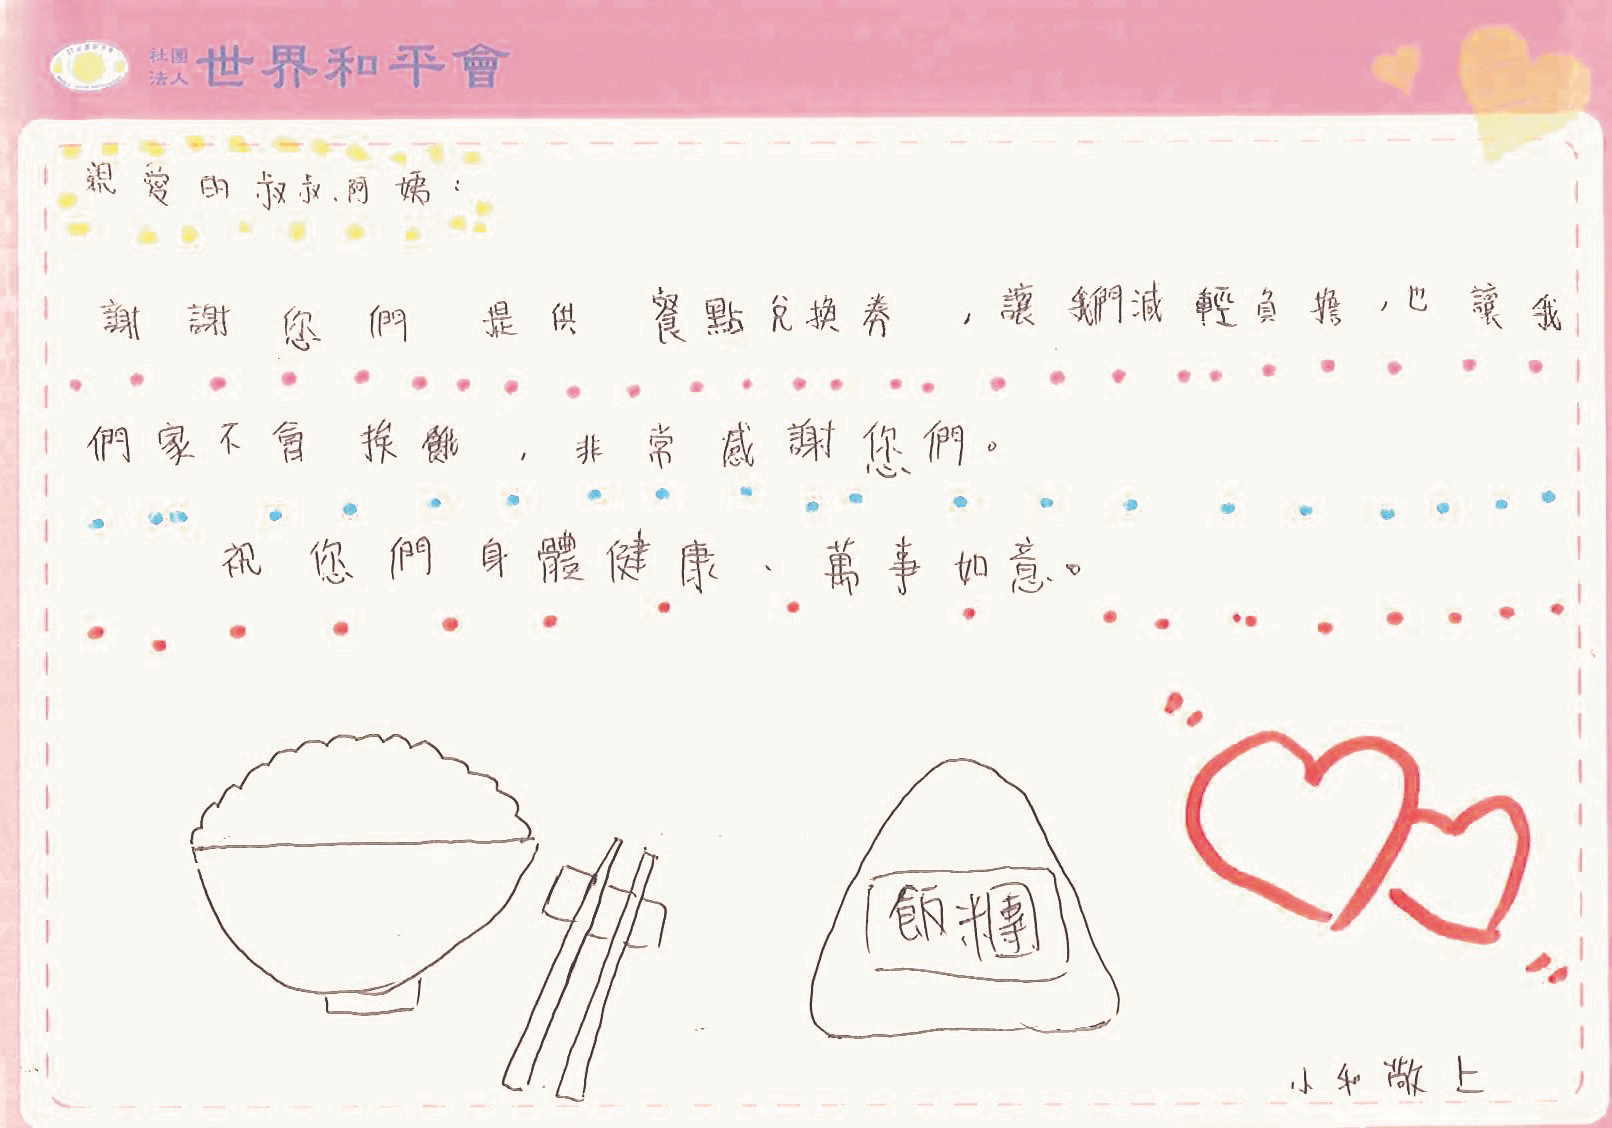 社團法人 世界和平會
親愛的叔叔、阿姨：
謝謝您們提供餐點兌換券，讓我們減輕負擔，也讓我
們家不會挨餓，非常感謝您們。
祝您們身體健康、萬事如意。
飯糰
小和敬上